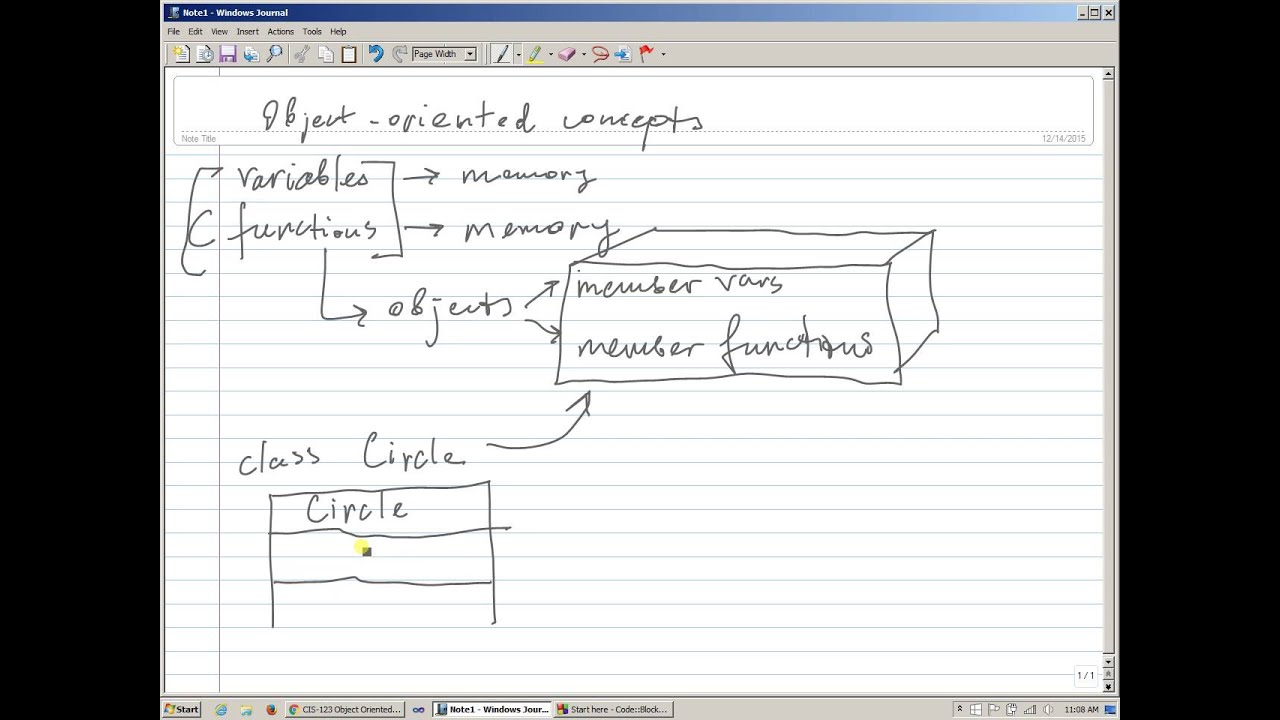 Note1 - Windows Journal
File Edit View Insert Actions Tools Help
Page Width
Object-oriented concepts
Note Title
12/14/2015
variables → memory
C functions → memory
member vars
objects
member functions
class Circle
Circle
1 / 1
Start CIS-123 Object Oriented... Note1 - Windows Jour... Start here - Code::Block... 11:08 AM